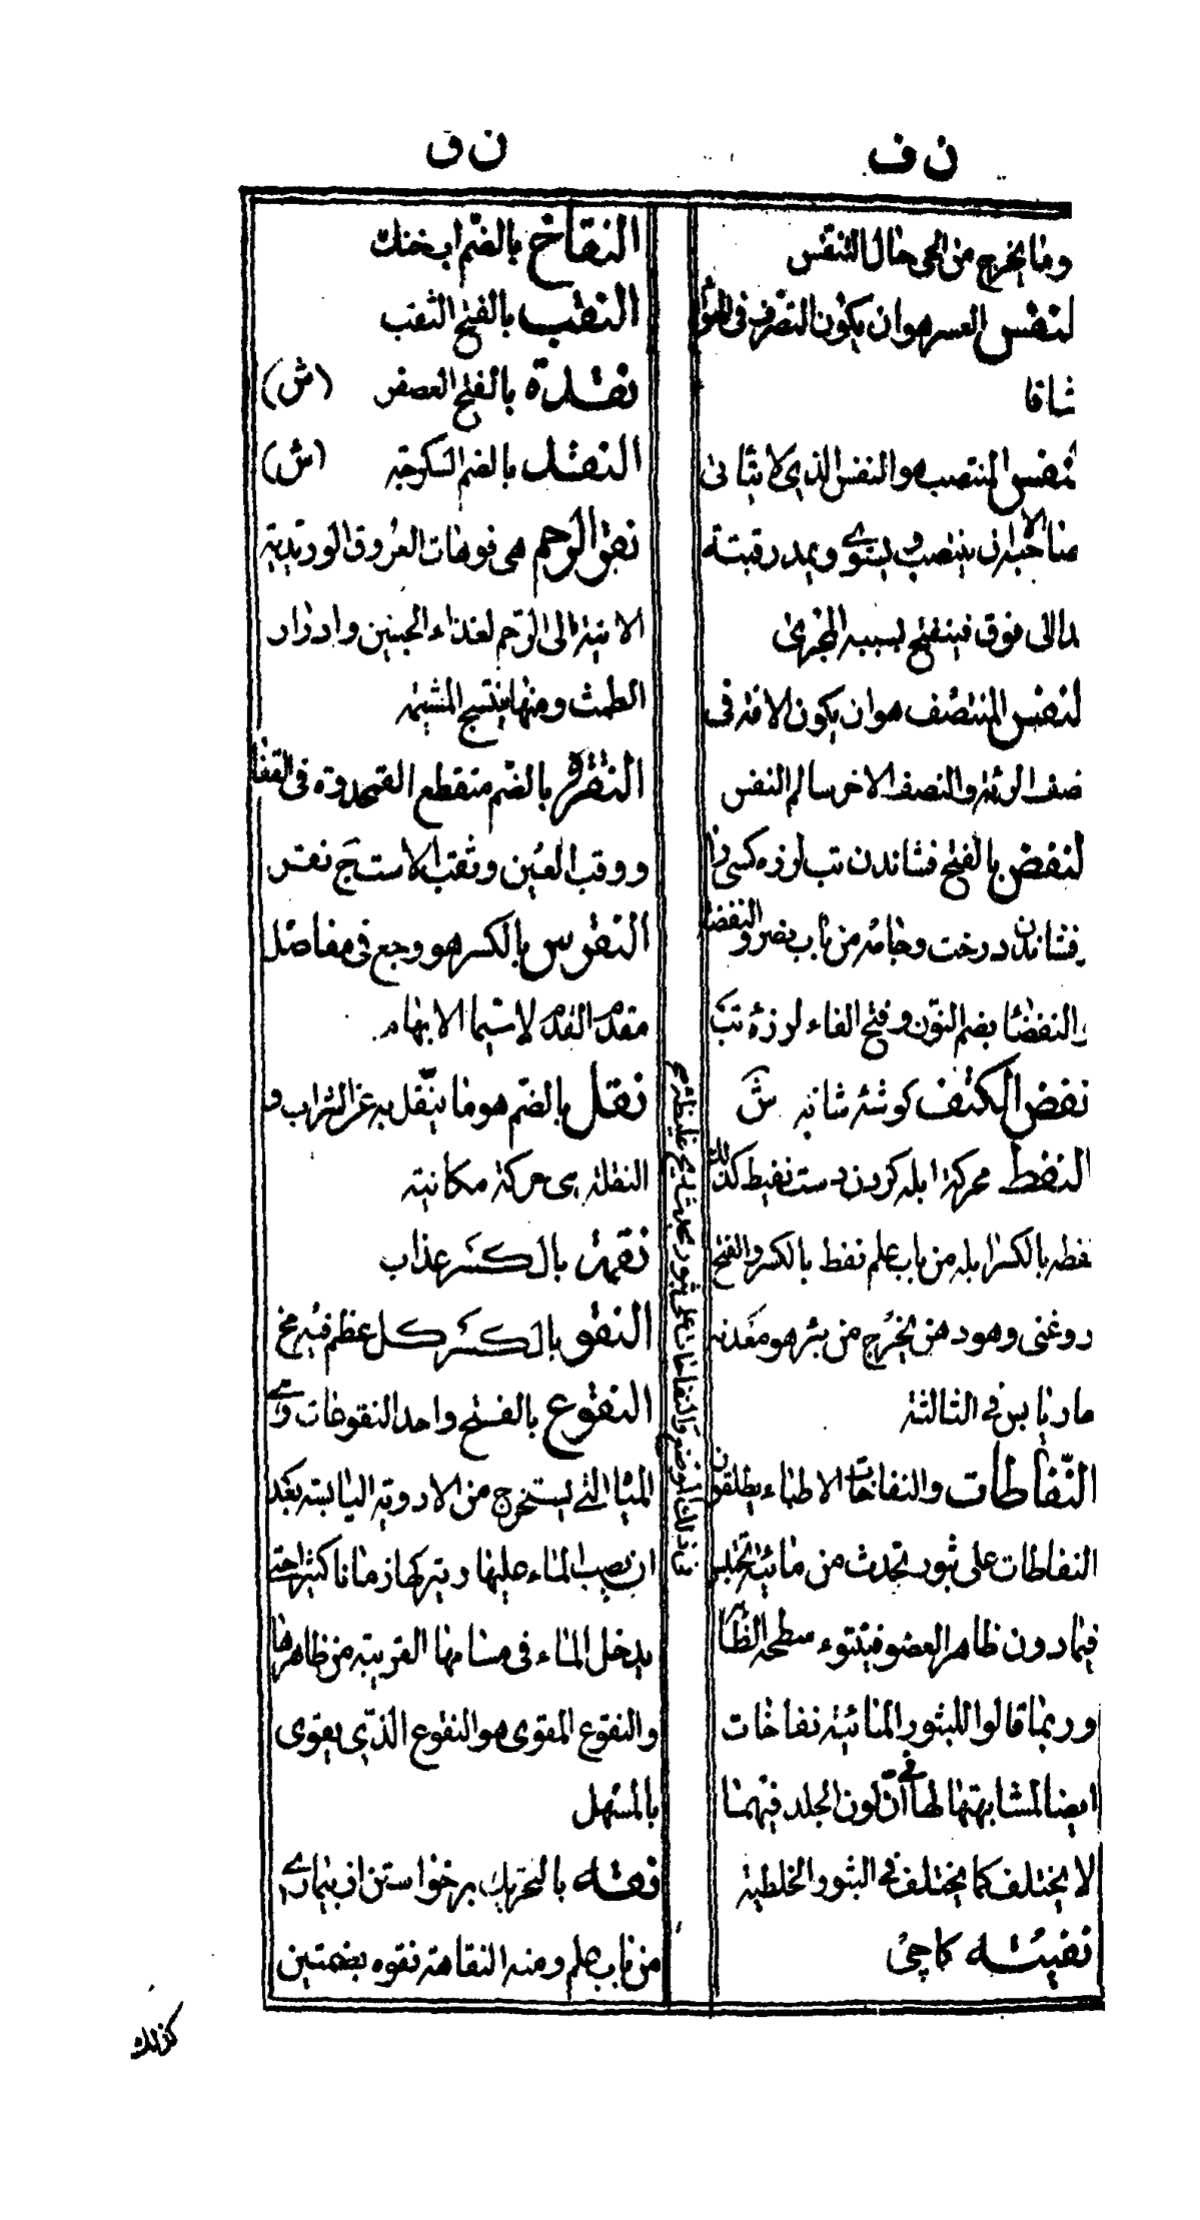 ن ف
وما يخرج من الحى حال التنفس
لنفس العسر هو ان يكون التصرف فى الهواء
شاقا
لنفس المنتصب هو النفس الذى لا يتأتى
صاحبه الا ان ينتصب و يستوى ويمد رقبته
مدا الى فوق فينفتح بسببه المجرى
لنفس المنتصف هو ان يكون الافة فى
نصف الرئة والنصف الاخر سالم النفس
لنفض بالفتح فشاندن تب لرزه كسى را
وفشاندن درخت وجامه من باب نصر والنفضة
والنفضا بضم النون وفتح الفاء لرزۀ تب
نغض الكتف گوشۀ شانه ش
النفط محركة ابله كردن دست نفيط كذلك
نفطه بالكسر ابله من باب علم نفط بالكسر والفتح
روغنى وهو دهن يخرج من بئر هو معدنه
حار يابس فى الثالثة
النفاطات والنفاخات الاطباء يطلقون
النفاطات على بثور تحدث من مائية تحتبس
فيما دون ظاهر العضو فينتوء سطحه الظاهر
وربما قالوا للبثور المائية نفاخات
ايضا لمشابهتها لها فى ان لون الجلد فيهما
لا يختلف كما يختلف فى البثور الخلطية
نفيشه كاچى
ن ق
النقاخ بالضم اب خنك
النقب بالفتح الثقب
نقدة بالفتح العصفر (ش)
النقل بالضم السكرجه (ش)
نقر الرحم هى فوهات العروق الوريدية
الاتية الى الرحم لغذاء الجنين وادرار
الطمث ومنها ينتسج المشيمة
النقرة بالضم منقطع القمحدوة فى القفا
ووقب العين وثقب الاست ج نقر
النقرس بالكسر هو وجع فى مفاصل
مقدم القدم لا سيما الابهام
نقل بالضم هو ما يتنقل به عن الشراب و
النقلة هى حركة مكانية
نقمة بالكسر عذاب
النقو بالكسر كل عظم فيه مخ
النقوع بالفتح واحد النقوعات وهى
المياه التى يستخرج من الادوية اليابسة بعد
ان يصب الماء عليها وتركها زمانا كثيرا حتى
يدخل الماء فى مسامها القريبة من ظاهرها
والنقوع المقوى هو النقوع الذى يقوى
بالمسهل
نقه بالتحريك برخواستن از بيمارى
من باب علم ومنه النقاهة نقوه بضمتين
كذلك